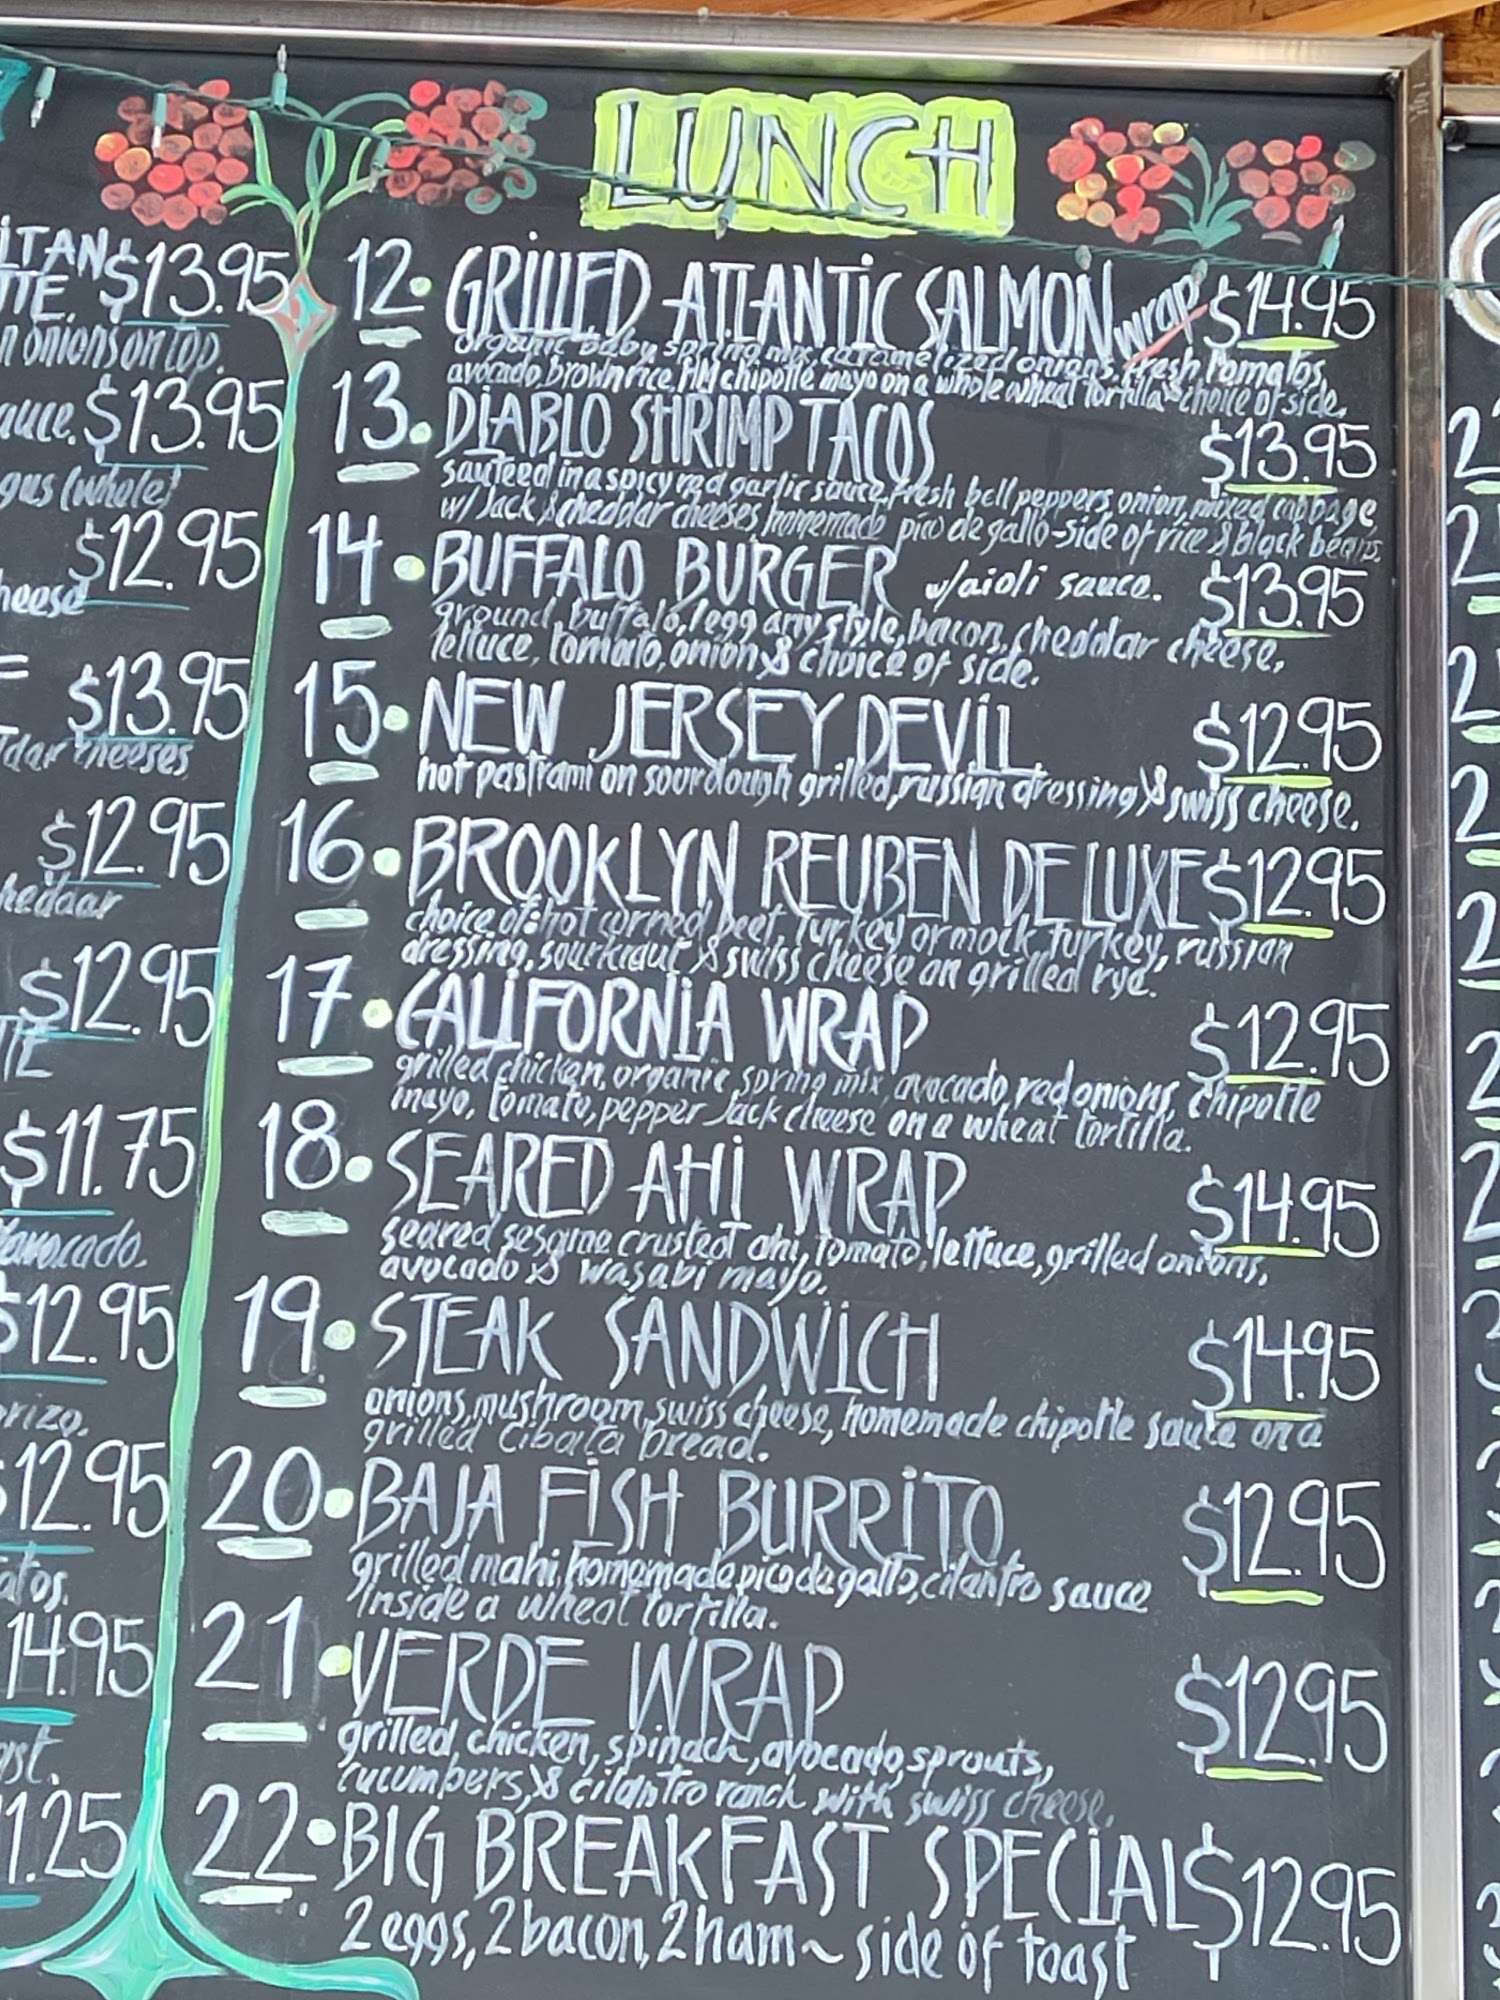 LUNCH
ITAN $13.95
TTE.
n onions on top.
auce. $13.95
gus (whole)
$12.95
heese
$13.95
dar cheeses
$12.95
heddar
$12.95
$11.75
avocado.
$12.95
orizo.
$12.95
atos.
14.95
ast.
1.25
12. GRILLED ATLANTIC SALMON wrap $14.95
organic baby spring mix, caramelized onions, fresh tomatos,
avocado, brown rice, HM chipotle mayo on a whole wheat tortilla & choice of side.
13. DIABLO SHRIMP TACOS $13.95
sauteed in a spicy red garlic sauce, fresh bell peppers, onion, mixed cabbage,
w/ Jack & cheddar cheeses, homemade pico de gallo - side of rice & black beans.
14. BUFFALO BURGER w/aioli sauce. $13.95
ground, buffalo, 1 egg any style, bacon, cheddar cheese,
lettuce, tomato, onion & choice of side.
15. NEW JERSEY DEVIL $12.95
hot pastrami on sourdough grilled, russian dressing & swiss cheese.
16. BROOKLYN REUBEN DE LUXE $12.95
choice of: hot corned beef, turkey or mock turkey, russian
dressing, sourkraut & swiss cheese on grilled rye.
17. CALIFORNIA WRAP $12.95
grilled chicken, organic spring mix, avocado, red onions, chipotle
mayo, tomato, pepper Jack cheese on a wheat tortilla.
18. SEARED AHI WRAP $14.95
seared sesame crusted ahi, tomato, lettuce, grilled onions,
avocado & wasabi mayo.
19. STEAK SANDWICH $14.95
onions, mushroom, swiss cheese, homemade chipotle sauce on a
grilled cibata bread.
20. BAJA FISH BURRITO $12.95
grilled mahi, homemade pico de gallo, cilantro sauce
inside a wheat tortilla.
21. VERDE WRAP $12.95
grilled chicken, spinach, avocado, sprouts,
cucumbers, & cilantro ranch with swiss cheese.
22. BIG BREAKFAST SPECIAL $12.95
2 eggs, 2 bacon, 2 ham ~ side of toast